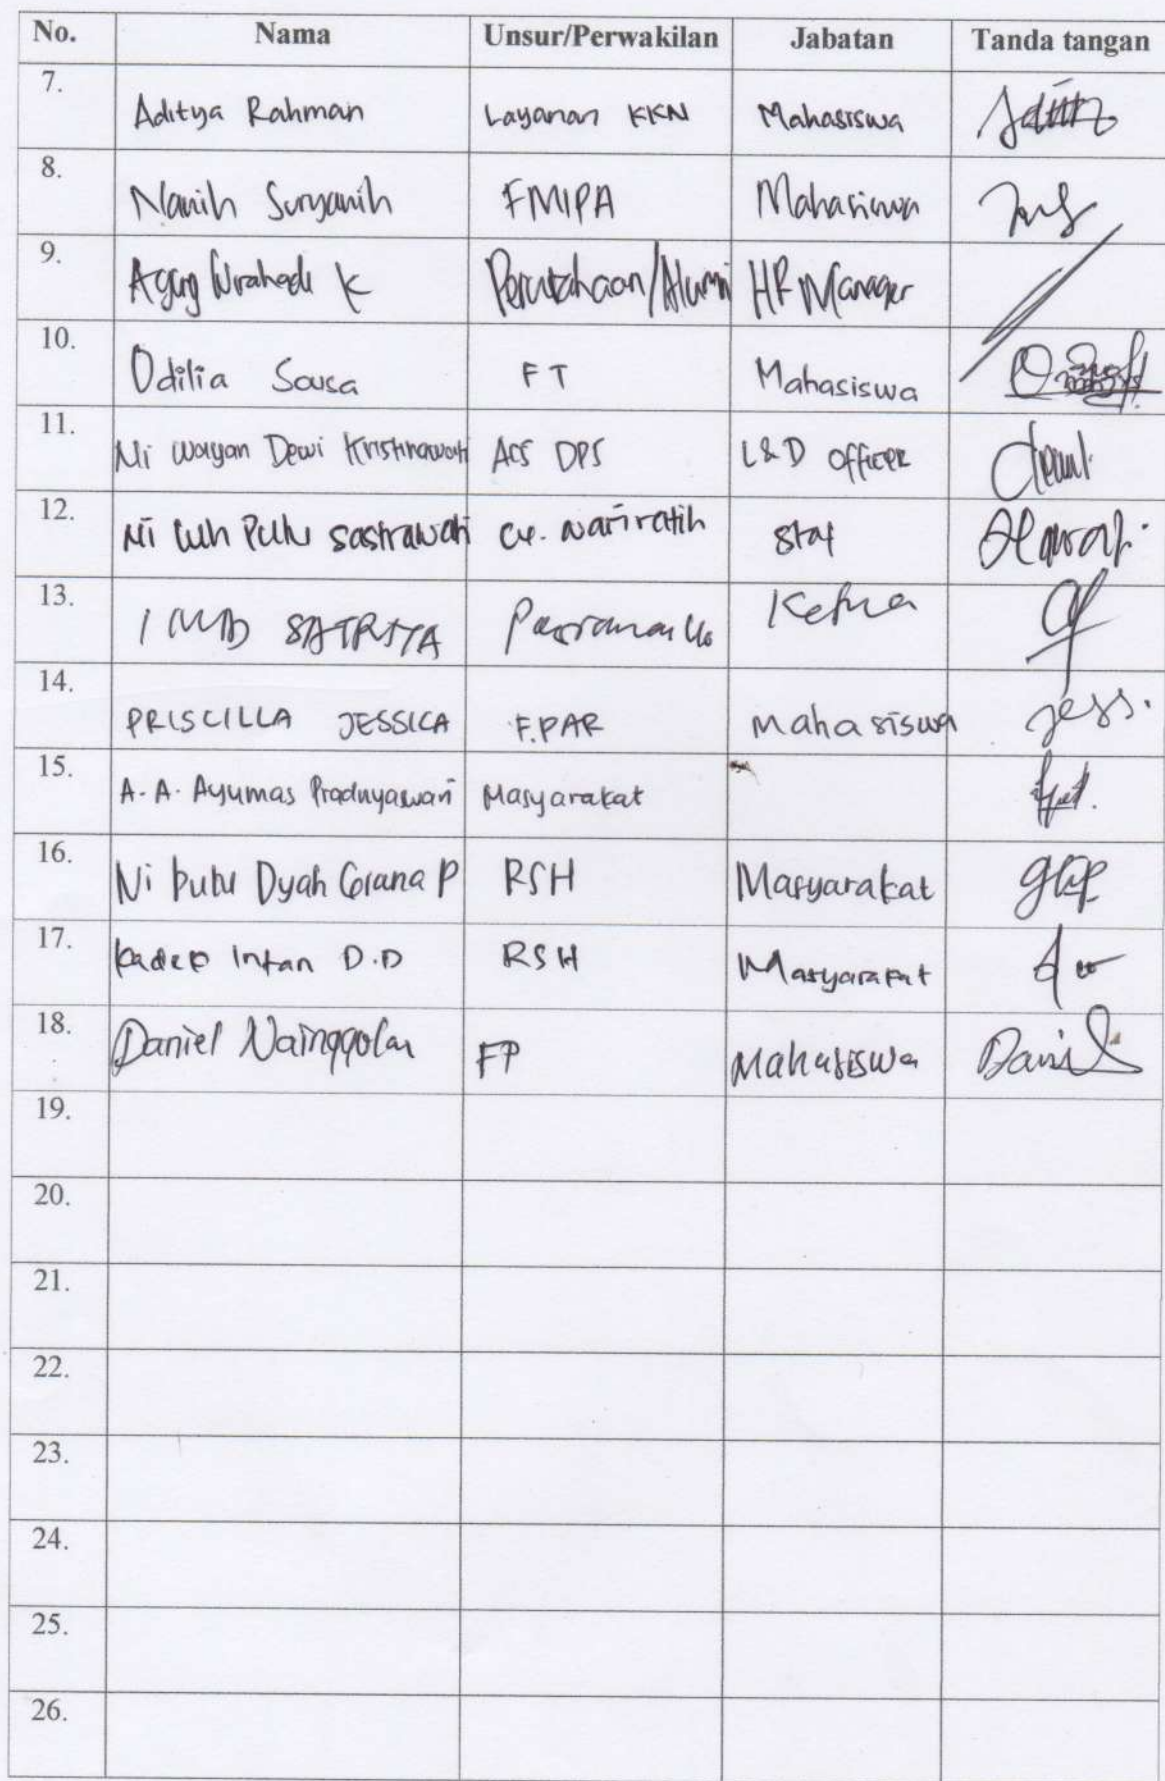 No. Nama Unsur/Perwakilan Jabatan Tanda tangan
7. Aditya Rahman Layanan KKN Mahasiswa
8. Nanih Suryanih FMIPA Mahasiswa
9. Agung K Perusahaan/Alumni HR Manager
10. Odilia Sousa FT Mahasiswa
11. Ni Wayan Dewi Kristinawati ACS DPS L&D Officer
12. Ni Luh Putu Sastrawati CV. Nariratih Staf
13. SATRIYA Ketua
14. PRISCILLA JESSICA F.PAR Mahasiswa Jess.
15. A.A. Ayumas Pradnyawari Masyarakat
16. Ni Putu Dyah P RSH Masyarakat
17. Kadek Intan D.D RSH Masyarakat
18. Daniel Nainggolan FP Mahasiswa Daniel
19.
20.
21.
22.
23.
24.
25.
26.